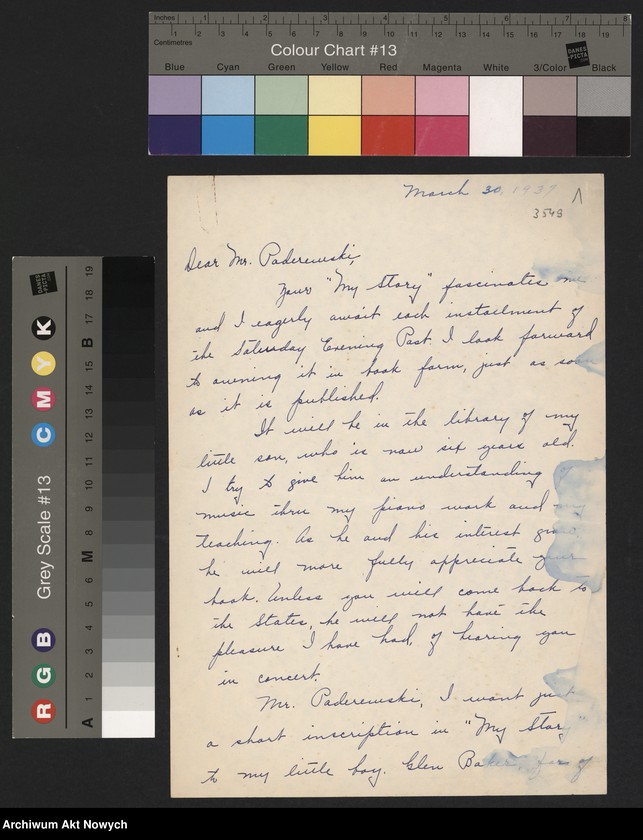 Inches 1 2 3 4 5 6 7 8
Centimetres 1 2 3 4 5 6 7 8 9 10 11 12 13 14 15 16 17 18 19
Colour Chart #13
DANES-PICTA
Blue Cyan Green Yellow Red Magenta White 3/Color Black
March 30, 1937
3548
Dear Mr. Paderewski,
Your "My Story" fascinates me
and I eagerly await each installment of
the Saturday Evening Post. I look forward
to owning it in book form, just as soon
as it is published.
It will be in the library of my
little son, who is now six years old.
I try to give him an understanding
music thru my piano work and
teaching. As he and his interest
he will more fully appreciate your
book. Unless you will come back to
the States, he will not have the
pleasure I have had, of hearing you
in concert.
Mr. Paderewski, I want just
a short inscription in "My Story"
to my little boy. Glen
Grey Scale #13
R G B
C M Y K
A 1 2 3 4 5 6 M 8 9 10 11 12 13 14 15 B 17 18 19
Archiwum Akt Nowych